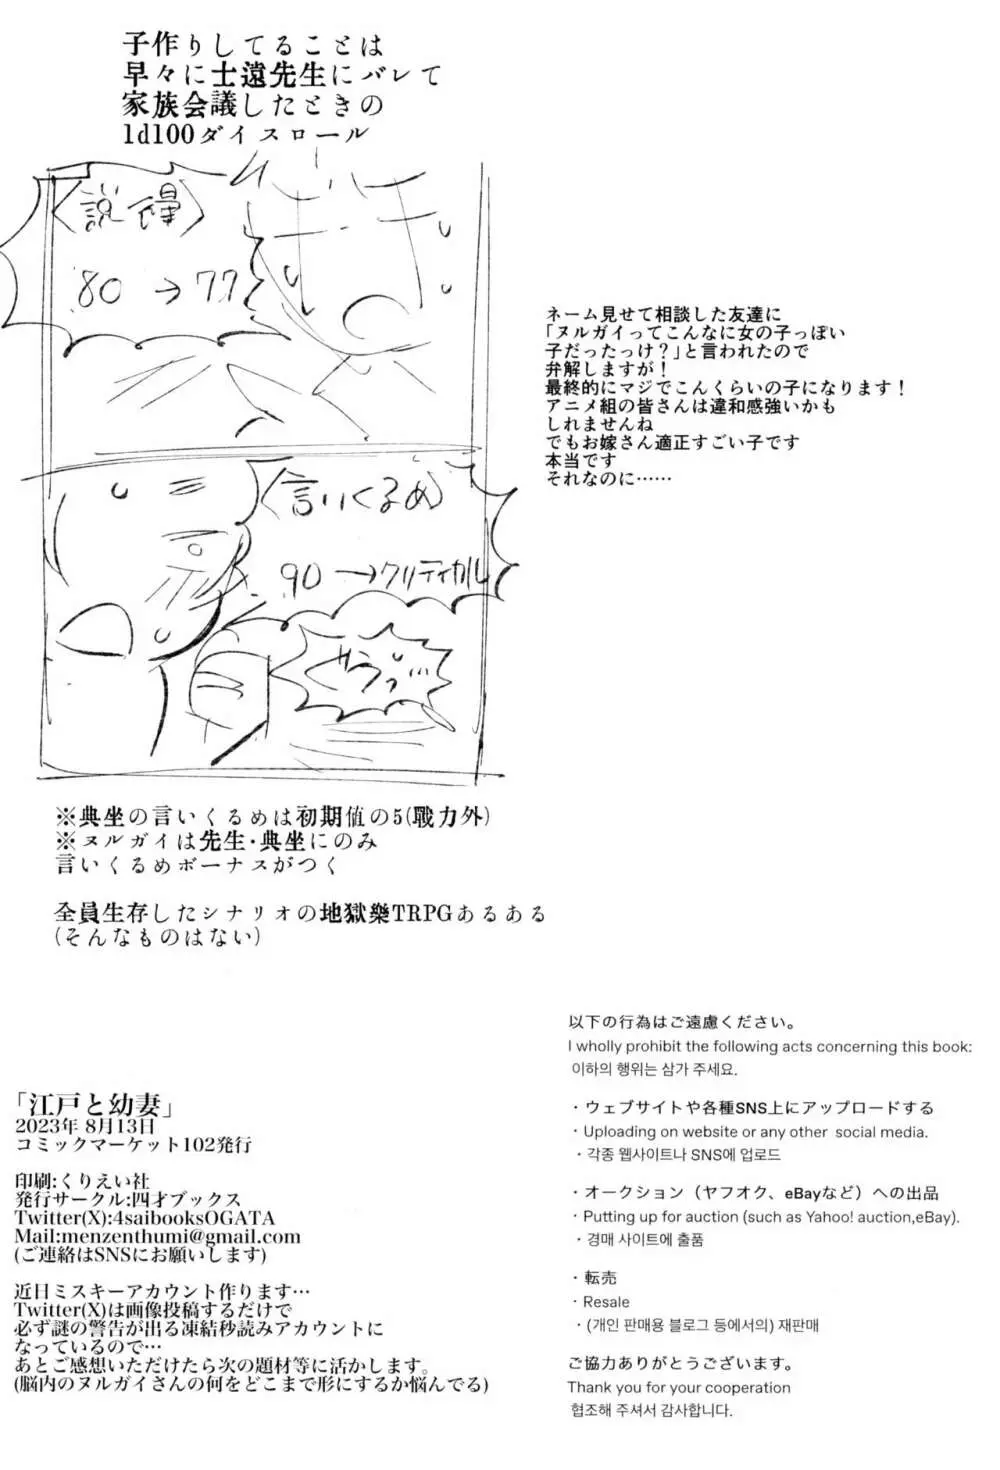 子作りしてることは
早々に士遠先生にバレて
家族会議したときの
1d100ダイスロール
〈説得〉
80→77
〈言いくるめ〉
90→クリティカル
ネーム見せて相談した友達に
「ヌルガイってこんなに女の子っぽい
子だったっけ？」と言われたので
弁解しますが！
最終的にマジでこんくらいの子になります！
アニメ組の皆さんは違和感強いかも
しれませんね
でもお嫁さん適正すごい子です
本当です
それなのに……
※典坐の言いくるめは初期値の5(戰力外)
※ヌルガイは先生・典坐にのみ
言いくるめボーナスがつく
全員生存したシナリオの地獄樂TRPGあるある
(そんなものはない)
「江戸と幼妻」
2023年 8月13日
コミックマーケット102発行
印刷:くりえい社
発行サークル:四才ブックス
Twitter(X):4saibooksOGATA
Mail:menzenthumi@gmail.com
(ご連絡はSNSにお願いします)
近日ミスキーアカウント作ります…
Twitter(X)は画像投稿するだけで
必ず謎の警告が出る凍結秒読みアカウントに
なっているので…
あとご感想いただけたら次の題材等に活かします。
(脳内のヌルガイさんの何をどこまで形にするか悩んでる)
以下の行為はご遠慮ください。
I wholly prohibit the following acts concerning this book:
이하의 행위는 삼가 주세요.
・ウェブサイトや各種SNS上にアップロードする
・Uploading on website or any other social media.
・각종 웹사이트나 SNS에 업로드
・オークション（ヤフオク、eBayなど）への出品
・Putting up for auction (such as Yahoo! auction,eBay).
・경매 사이트에 출품
・転売
・Resale
・(개인 판매용 블로그 등에서의) 재판매
ご協力ありがとうございます。
Thank you for your cooperation
협조해 주셔서 감사합니다.